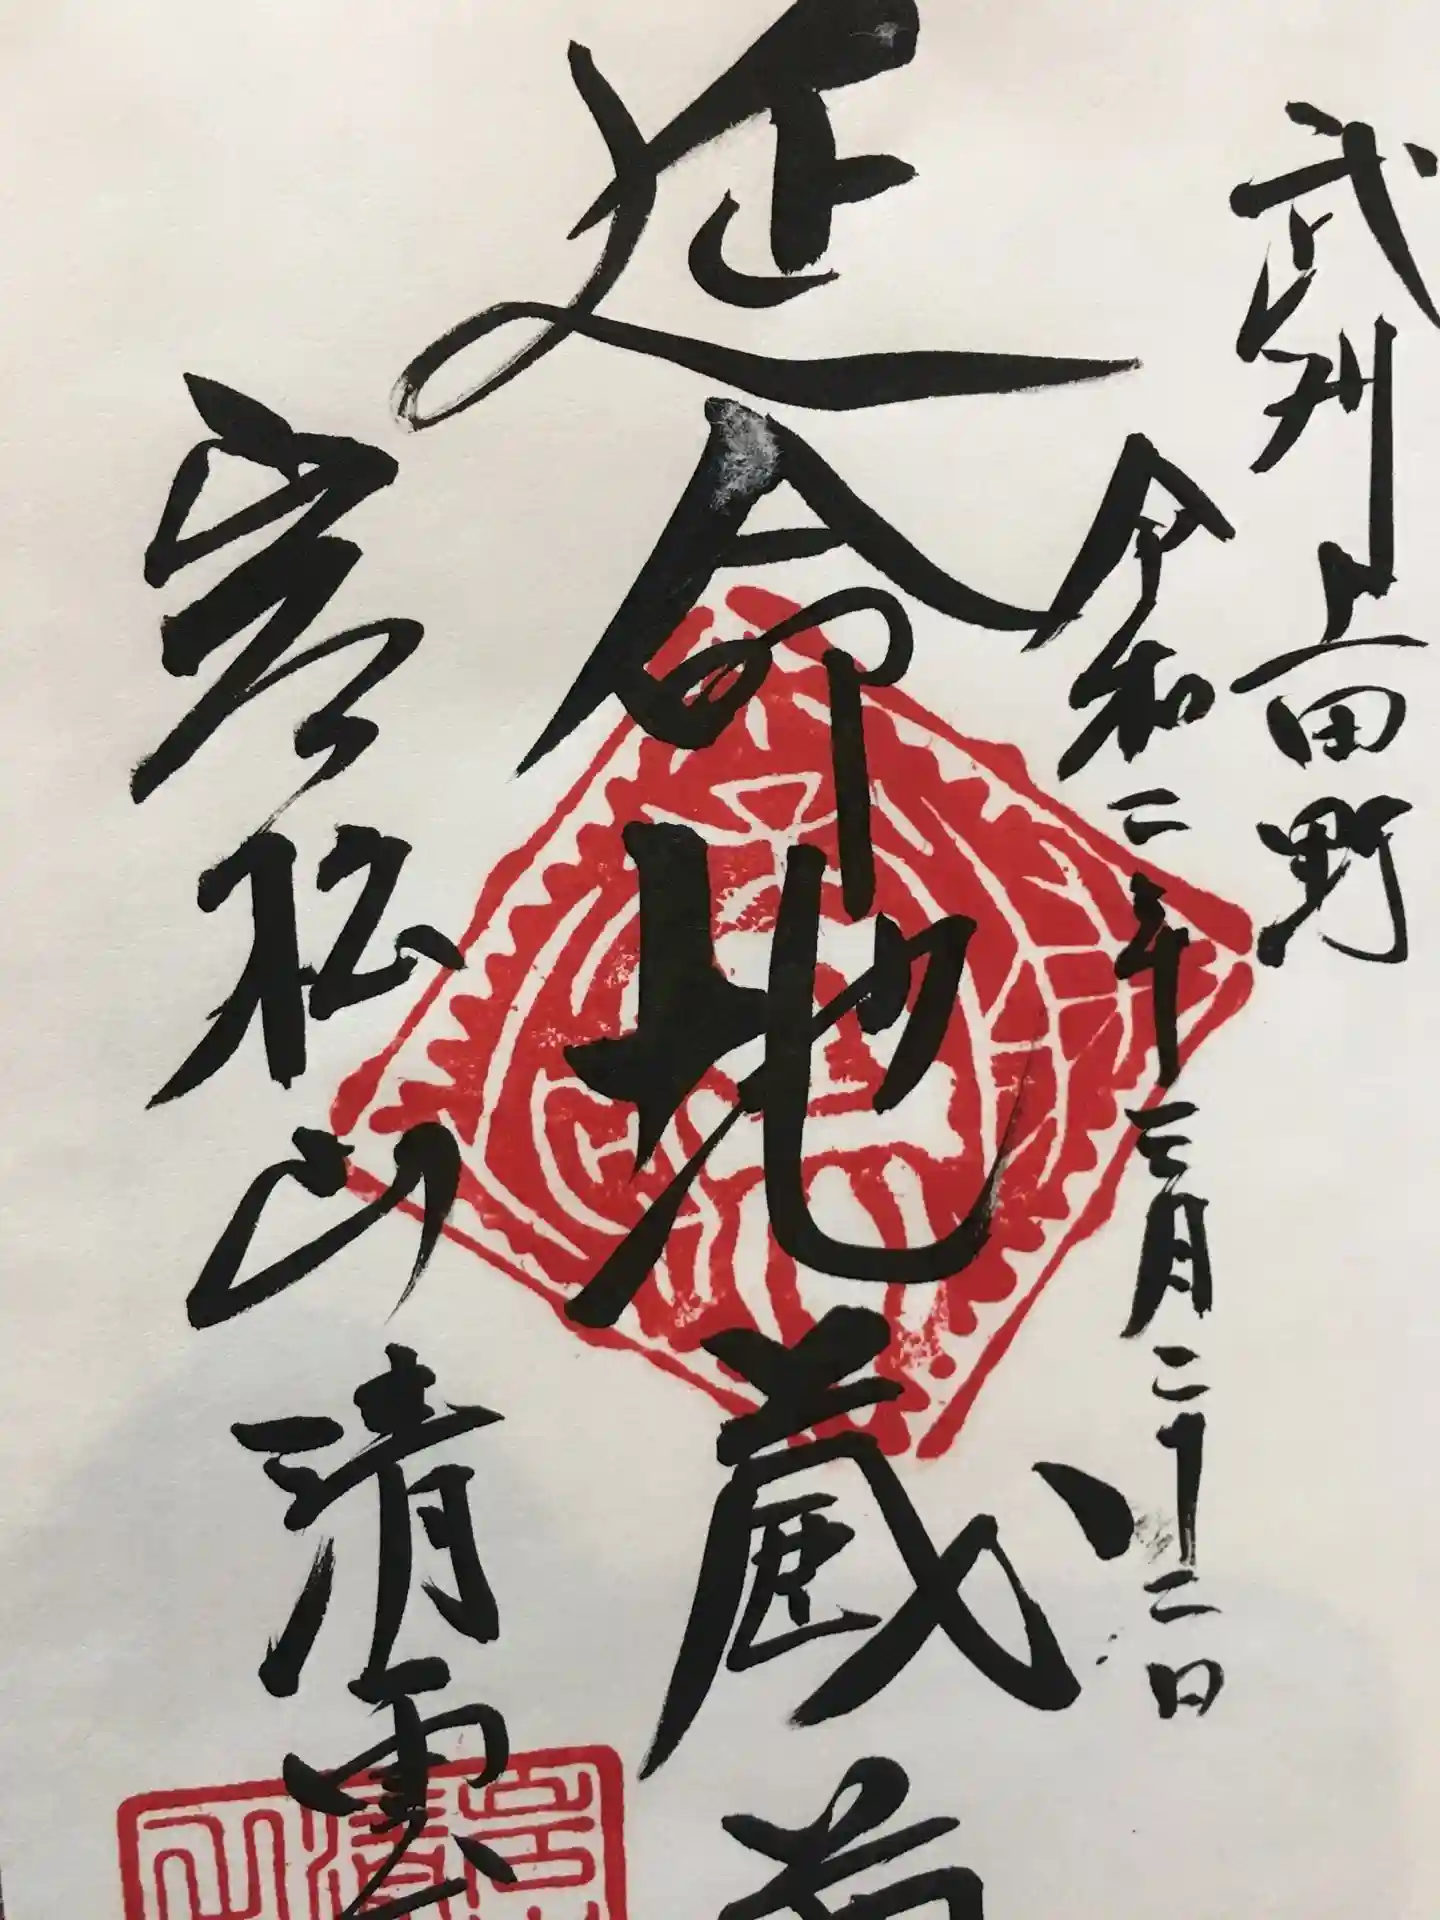 武州上田野
令和二年三月二十二日
延命地蔵
岩松山清雲